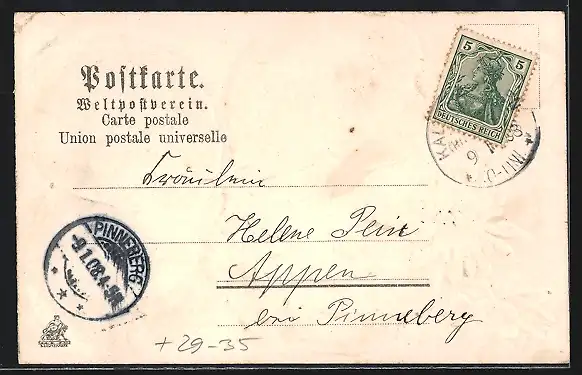 Postkarte.
Weltpostverein.
Carte postale
Union postale universelle
5 5
DEUTSCHES REICH
KAL
9
08
Fräulein
Helene Pein
Appen
bei Pinneberg
PINNEBERG
-9.1.08.4-5N
+ 29-35